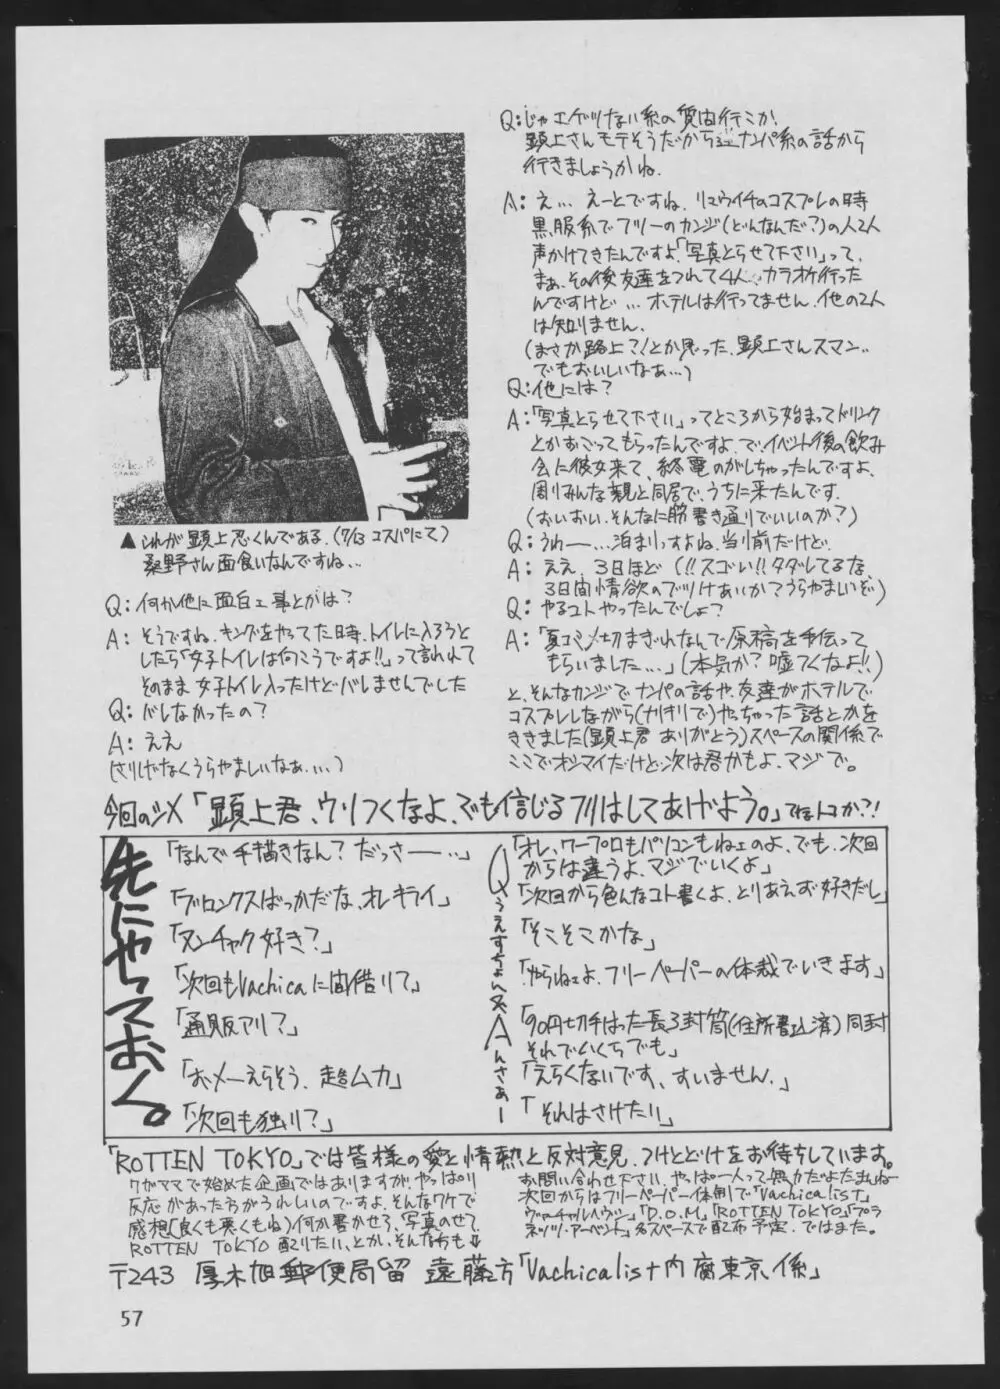 ▲これが顕上忍くんである.(7/13 コスパにて)
桑野さん面食いなんですね...
Q: 何か他に面白い事とかは?
A: そうですね、キングをやってた時、トイレに入ろうと
したら「女子トイレは向こうですよ!!」って言われて
そのまま女子トイレ入ったけどバレませんでした
Q: バレなかったの?
A: ええ
(さりげなくうらやましいなぁ...)
Q: じゃエゲツない系の質問行こか.
顕上さんモテそうだから逆ナンパ系の話から
行きましょうかね.
A: え... えーとですね、リュウイチのコスプレの時
黒服系でフリーのカンジ(どんなんだ?)の人2人
声かけてきたんですよ「写真とらせて下さい」って、
まぁ、その後友達をつれて4人でカラオケ行った
んですけど... ホテルは行ってません.他の2人
は知りません.
(まさか路上?!とか思った、顕上さんスマン..
でもおいしいなぁ...)
Q: 他には?
A: 「写真とらせて下さい」ってところから始まってドリンク
とかおごってもらったんですよ、で、イベント後の飲み
会に彼女来て、終電のがしちゃったんですよ、
周りみんな親と同居で、うちに来たんです.
(おいおい、そんなに筋書き通りでいいのか?)
Q: うわー...泊まりっすよね、当り前だけど.
A: ええ、3日ほど (!!スゴい!!タダレてるな、
3日間情欲のでづけあいか?うらやましいぞ)
Q: やるコトやったんでしょ?
A: 「夏コミ〆切まぎれなんで原稿を手伝って
もらいました...」(本気か?嘘つくなよ!!)
と、そんなカンジでナンパの話や、友達がホテルで
コスプレしながら(ナリキリで)やっちゃった話とかを
ききました(顕上君 ありがとう)スペースの関係で
ここでオシマイだけど次は君かもよ、マジで。
今回のシメ「顕上君、ウソつくなよ、でも信じるフリはしてあげよう。」てなトコか?!
先にやっておく。
「なんで手描きなん? だっさー...」
「ブロンクスばっかだな、オレキライ」
「ヌンチャク好き?」
「次回もVachicaに間借りて」
「通販アリ?」
「おメーえらそう、超ムカ」
「次回も独り?」
Qうえすちょん&Aんさぁー
「オレ、ワープロもパソコンもねェのよ、でも、次回
からは違うよ、マジでいくよ」
「次回から色んなコト書くよ、とりあえず好きだし」
「そこそこかな」
「やらねェよ、フリーペーパーの体裁でいきます」
「90円切手はった長3封筒(住所書込済)同封
それでいくらでも」
「えらくないです、すいません.」
「それはさけたい」
「ROTTEN TOKYO」では皆様の愛と情熱と反対意見、つけとどけをお待ちしています。
ワガママで始めた企画ではありますが、やっぱり
反応があった方がうれしいのですよ、そんなワケで
感想(良くも悪くもね)何か書かせろ、写真のせて
ROTTEN TOKYO 配りたい、とか、そんな方も⇓
お問い合わせ下さい、やっぱ一人って無力だよたまね
次回からはフリーペーパー体制で「Vachicalist」
ヴァーチャルヘヴン」「D.O.M」「ROTTEN TOKYO」「プラ
ネッツ・アーベント」各スペースで配布予定.ではまた。
〒243 厚木旭郵便局留 遠藤方「Vachicalist内 腐東京係」
57